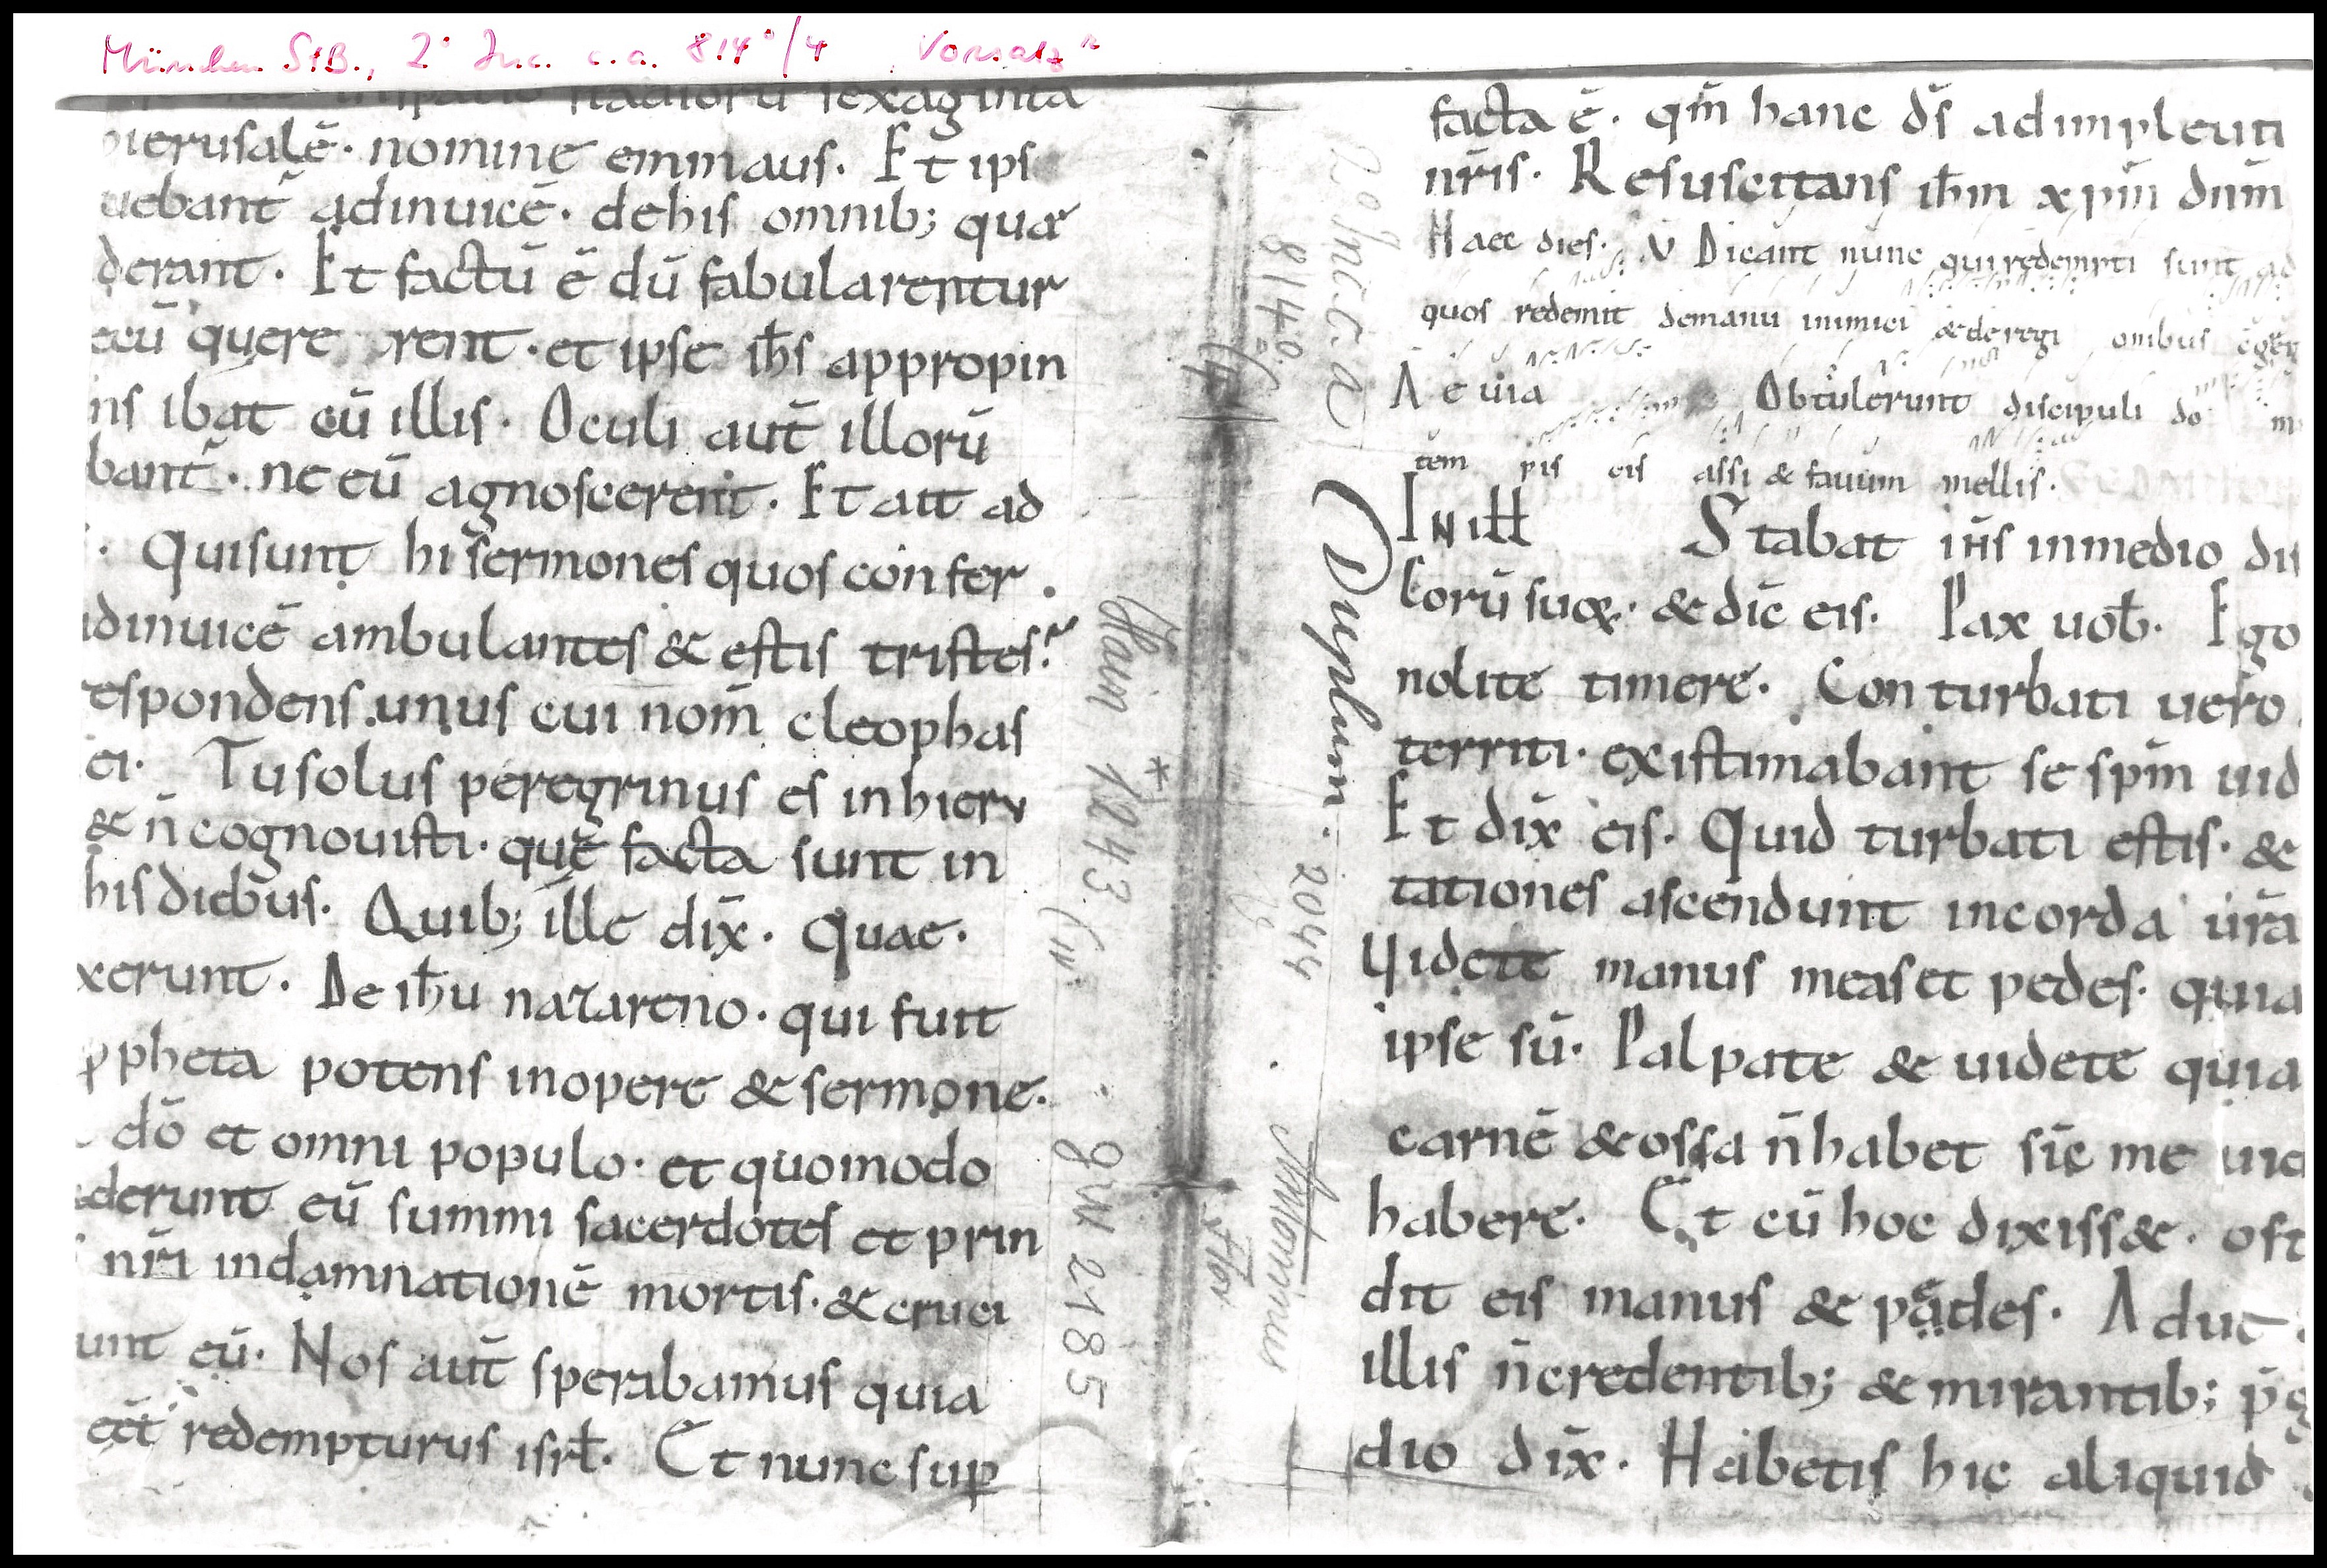 München StB., 2° Inc. c.a. 814°/4 Vorsatz
stadiorū sexaginta
hierusalē. nomine emmaus. Et ips
uebant adinuicē. dehis omnib; quae
derant. Et factū ē dū fabularentur
ecū quere rent. et ipse ih̄s appropin
ns ibat cū illis. Oculi aut̄ illorū
bant. ne eū agnoscerent. Et ait ad
. Qui sunt hi sermones quos confer.
adinuicē ambulantes & estis tristes?
espondens. unus cui nom̄ cleophas
ei. Tu solus peregrinus es in hieru
& n̄ cognouisti. quę facta sunt in
his diebus. Quib; ille dix̄. Quae.
xerunt. De ih̄u nazareno. qui fuit
ppheta potens inopere & sermone.
dō et omni populo. et quomodo
derunt eū summi sacerdotes et prin
nr̄i indamnationē mortis. & cruci
unt eū. Nos aut̄ sperabamus quia
eēt redempturus isrł. Et nunc sup
Hain *1243 (iv
GW 2185
2° Inc. c. a.
814° (4
Duplum. 2044
Antoninus
Flor
facta ē. qm̄ hanc ds̄ adimpleuit
nr̄is. Resuscitans ih̄m xp̄m dn̄m
Haec dies. V Dicant nunc qui redempti sunt ad
quos redemit demanu inimici & deregi onibus
Ae uia Obtulerunt discipuli do
tem pis cis assi & fauum mellis.
In illł Stabat ih̄s inmedio dis
torū suoꝝ. & dic̄ eis. Pax uob̄. Ego
nolite timere. Conturbati uero
territi. existimabant se sp̄m uid
Et dix̄ eis. Quid turbati estis. &
tationes ascendunt incorda ur̄a
Uidete manus meas et pedes. quia
ipse sū. Palpate & uidete quia
carnē & ossa n̄ habet sic̄ me uid
habere. Et cū hoc dixiss&. ost
dit eis manus & pedes. Adhuc
illis n̄ credentib; & mirantib; p̄ g
dio dix̄. Habetis hic aliquid